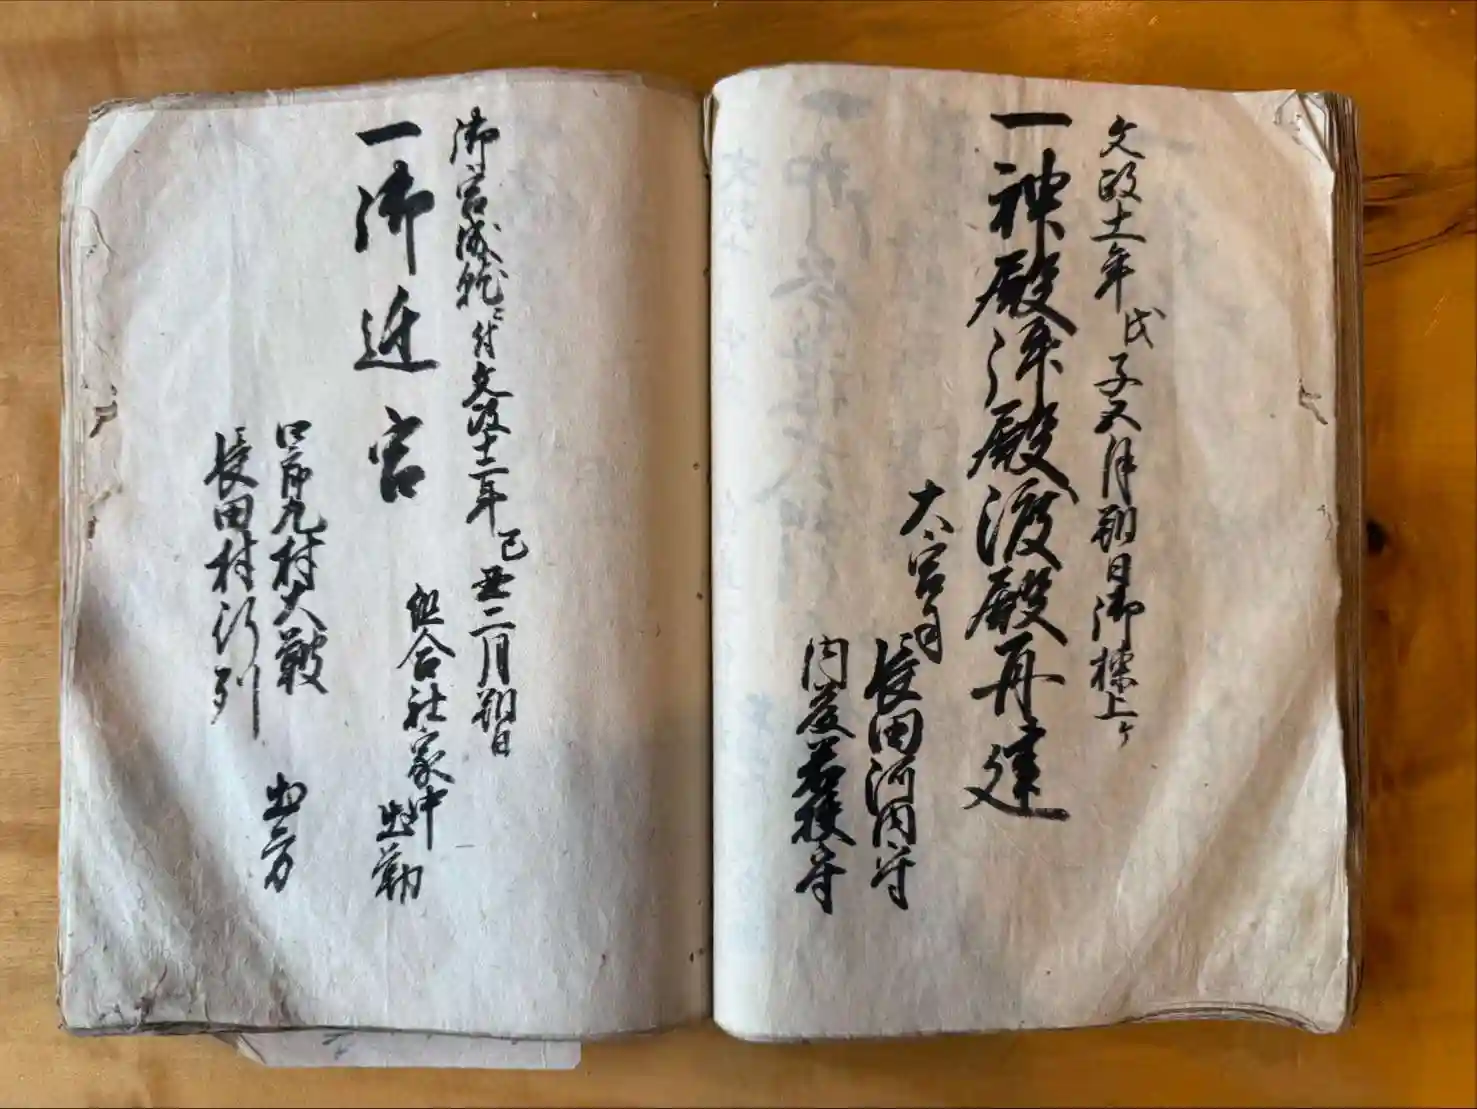 文政十一年戊子五月朔日御棟上ヶ
一神殿浄殿渡殿再建
大宮司
長田河内守
内藤若狭守
御宮成就ニ付文政十二年己丑二月朔日
一御迁宮
組合社家中
出勤
口布九村大鞁
長田村行列
出ル方